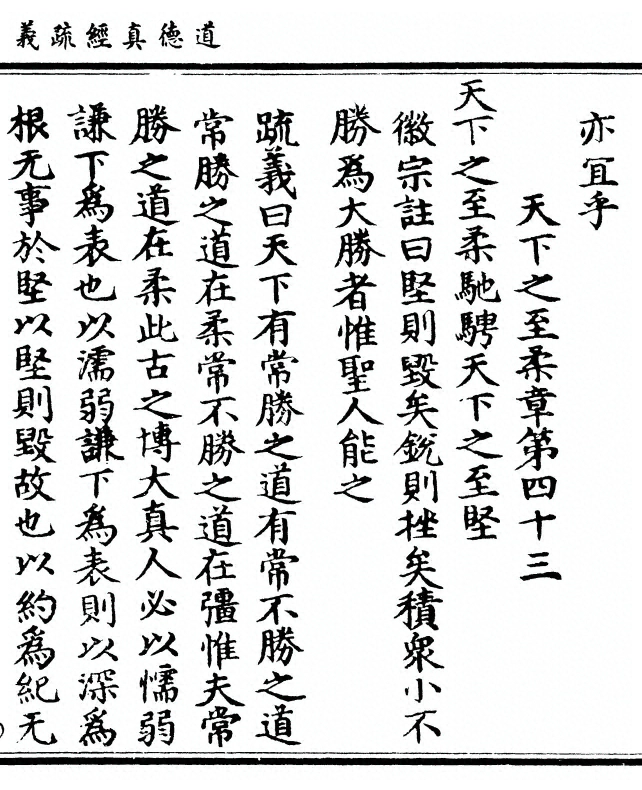 道德真經疏義
亦宜乎
天下之至柔章第四十三
天下之至柔馳騁天下之至堅
徽宗註曰堅則毀矣銳則挫矣積衆小不
勝為大勝者惟聖人能之
疏義曰天下有常勝之道有常不勝之道
常勝之道在柔常不勝之道在彊惟夫常
勝之道在柔此古之博大真人必以懦弱
謙下為表也以濡弱謙下為表則以深為
根无事於堅以堅則毀故也以約為紀无